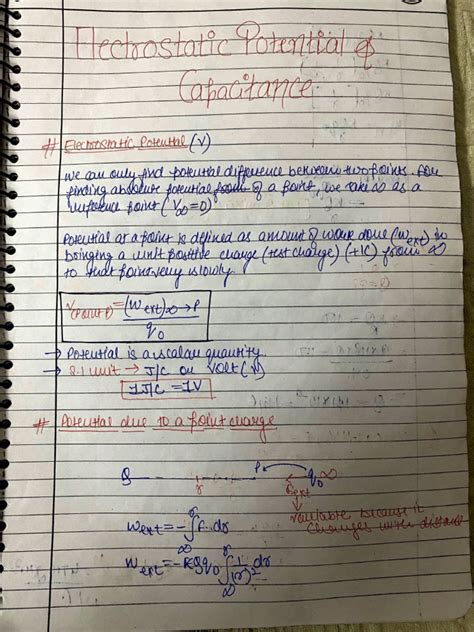 Electrostatic Potential &
Capacitance
# Electrostatic Potential (V)
We can only find potential difference between two points. For
finding absolute potential of a point, we take ∞ as a
reference point (V∞=0)
Potential at a point is defined as amount of work done (Wext) in
bringing a unit positive charge (test charge) (+1C) from ∞
to that point very slowly.
V(Point P) = (Wext)∞→P / q0
→ Potential is a scalar quantity.
→ S.I unit → J/C or Volt (V)
1J/C = 1V
# Potential due to a point charge
Q r P q0 ∞
Fext
variable because it
changes with distance
Wext = -∫∞^r F. dr
Wext = -KQq0 ∫∞^r 1/(r)² dr